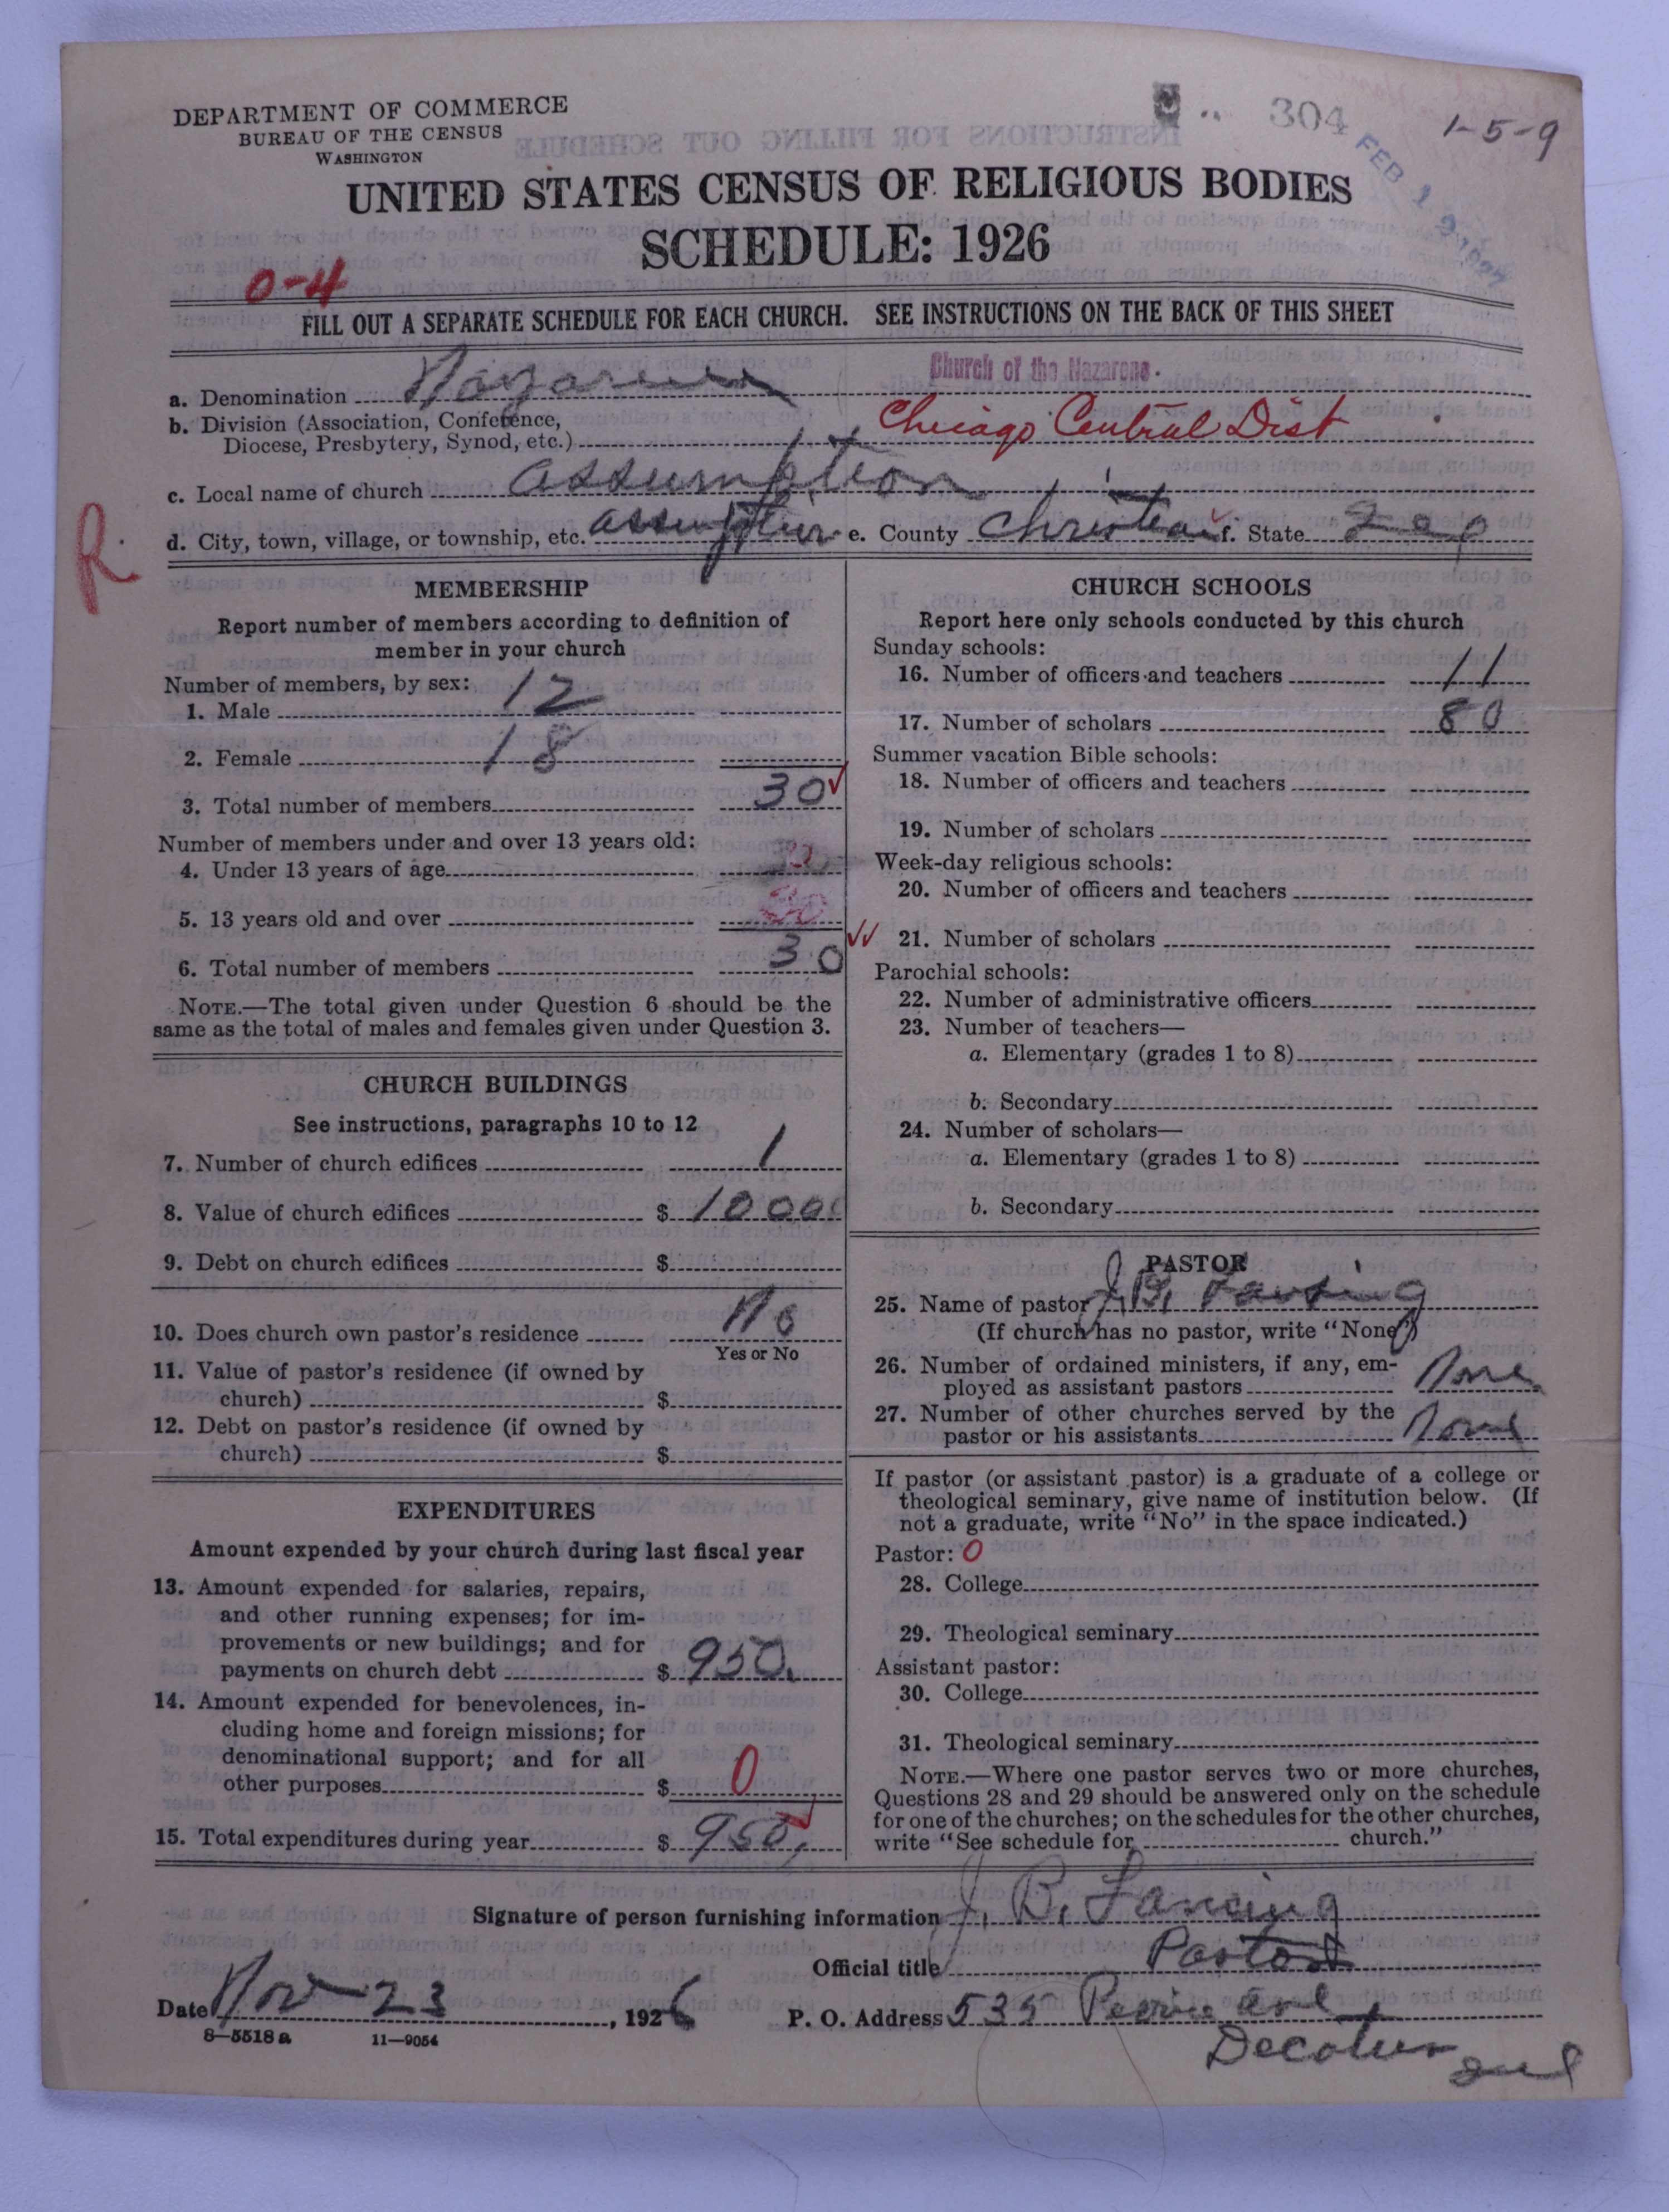 DEPARTMENT OF COMMERCE
BUREAU OF THE CENSUS
WASHINGTON
304
1-5-9
FEB 1 2 1927
UNITED STATES CENSUS OF RELIGIOUS BODIES
SCHEDULE: 1926
0-4
FILL OUT A SEPARATE SCHEDULE FOR EACH CHURCH. SEE INSTRUCTIONS ON THE BACK OF THIS SHEET
a. Denomination Nazarene Church of the Nazarene.
b. Division (Association, Conference,
Diocese, Presbytery, Synod, etc.) Chicago Central Dist
c. Local name of church assumption
R
d. City, town, village, or township, etc. assumption e. County Christian f. State
MEMBERSHIP
Report number of members according to definition of
member in your church
Number of members, by sex:
1. Male 12
2. Female 18
3. Total number of members 30
Number of members under and over 13 years old:
4. Under 13 years of age
5. 13 years old and over
6. Total number of members 30
NOTE.—The total given under Question 6 should be the
same as the total of males and females given under Question 3.
CHURCH BUILDINGS
See instructions, paragraphs 10 to 12
7. Number of church edifices 1
8. Value of church edifices $ 1000
9. Debt on church edifices $
10. Does church own pastor's residence No
Yes or No
11. Value of pastor's residence (if owned by
church) $
12. Debt on pastor's residence (if owned by
church) $
EXPENDITURES
Amount expended by your church during last fiscal year
13. Amount expended for salaries, repairs,
and other running expenses; for im-
provements or new buildings; and for
payments on church debt $ 950.
14. Amount expended for benevolences, in-
cluding home and foreign missions; for
denominational support; and for all
other purposes $ 0
15. Total expenditures during year $ 950,
CHURCH SCHOOLS
Report here only schools conducted by this church
Sunday schools:
16. Number of officers and teachers 11
17. Number of scholars 80
Summer vacation Bible schools:
18. Number of officers and teachers
19. Number of scholars
Week-day religious schools:
20. Number of officers and teachers
21. Number of scholars
Parochial schools:
22. Number of administrative officers
23. Number of teachers—
a. Elementary (grades 1 to 8)
b. Secondary
24. Number of scholars—
a. Elementary (grades 1 to 8)
b. Secondary
PASTOR
25. Name of pastor J. B.
(If church has no pastor, write "None")
26. Number of ordained ministers, if any, em-
ployed as assistant pastors None
27. Number of other churches served by the
pastor or his assistants None
If pastor (or assistant pastor) is a graduate of a college or
theological seminary, give name of institution below. (If
not a graduate, write "No" in the space indicated.)
Pastor: 0
28. College
29. Theological seminary
Assistant pastor:
30. College
31. Theological seminary
NOTE.—Where one pastor serves two or more churches,
Questions 28 and 29 should be answered only on the schedule
for one of the churches; on the schedules for the other churches,
write "See schedule for church."
Signature of person furnishing information J. B. Lansing
Official title Pastor
Date Nov 23, 1926 P. O. Address 535 ave
Decatur
8—5518 a 11—9054